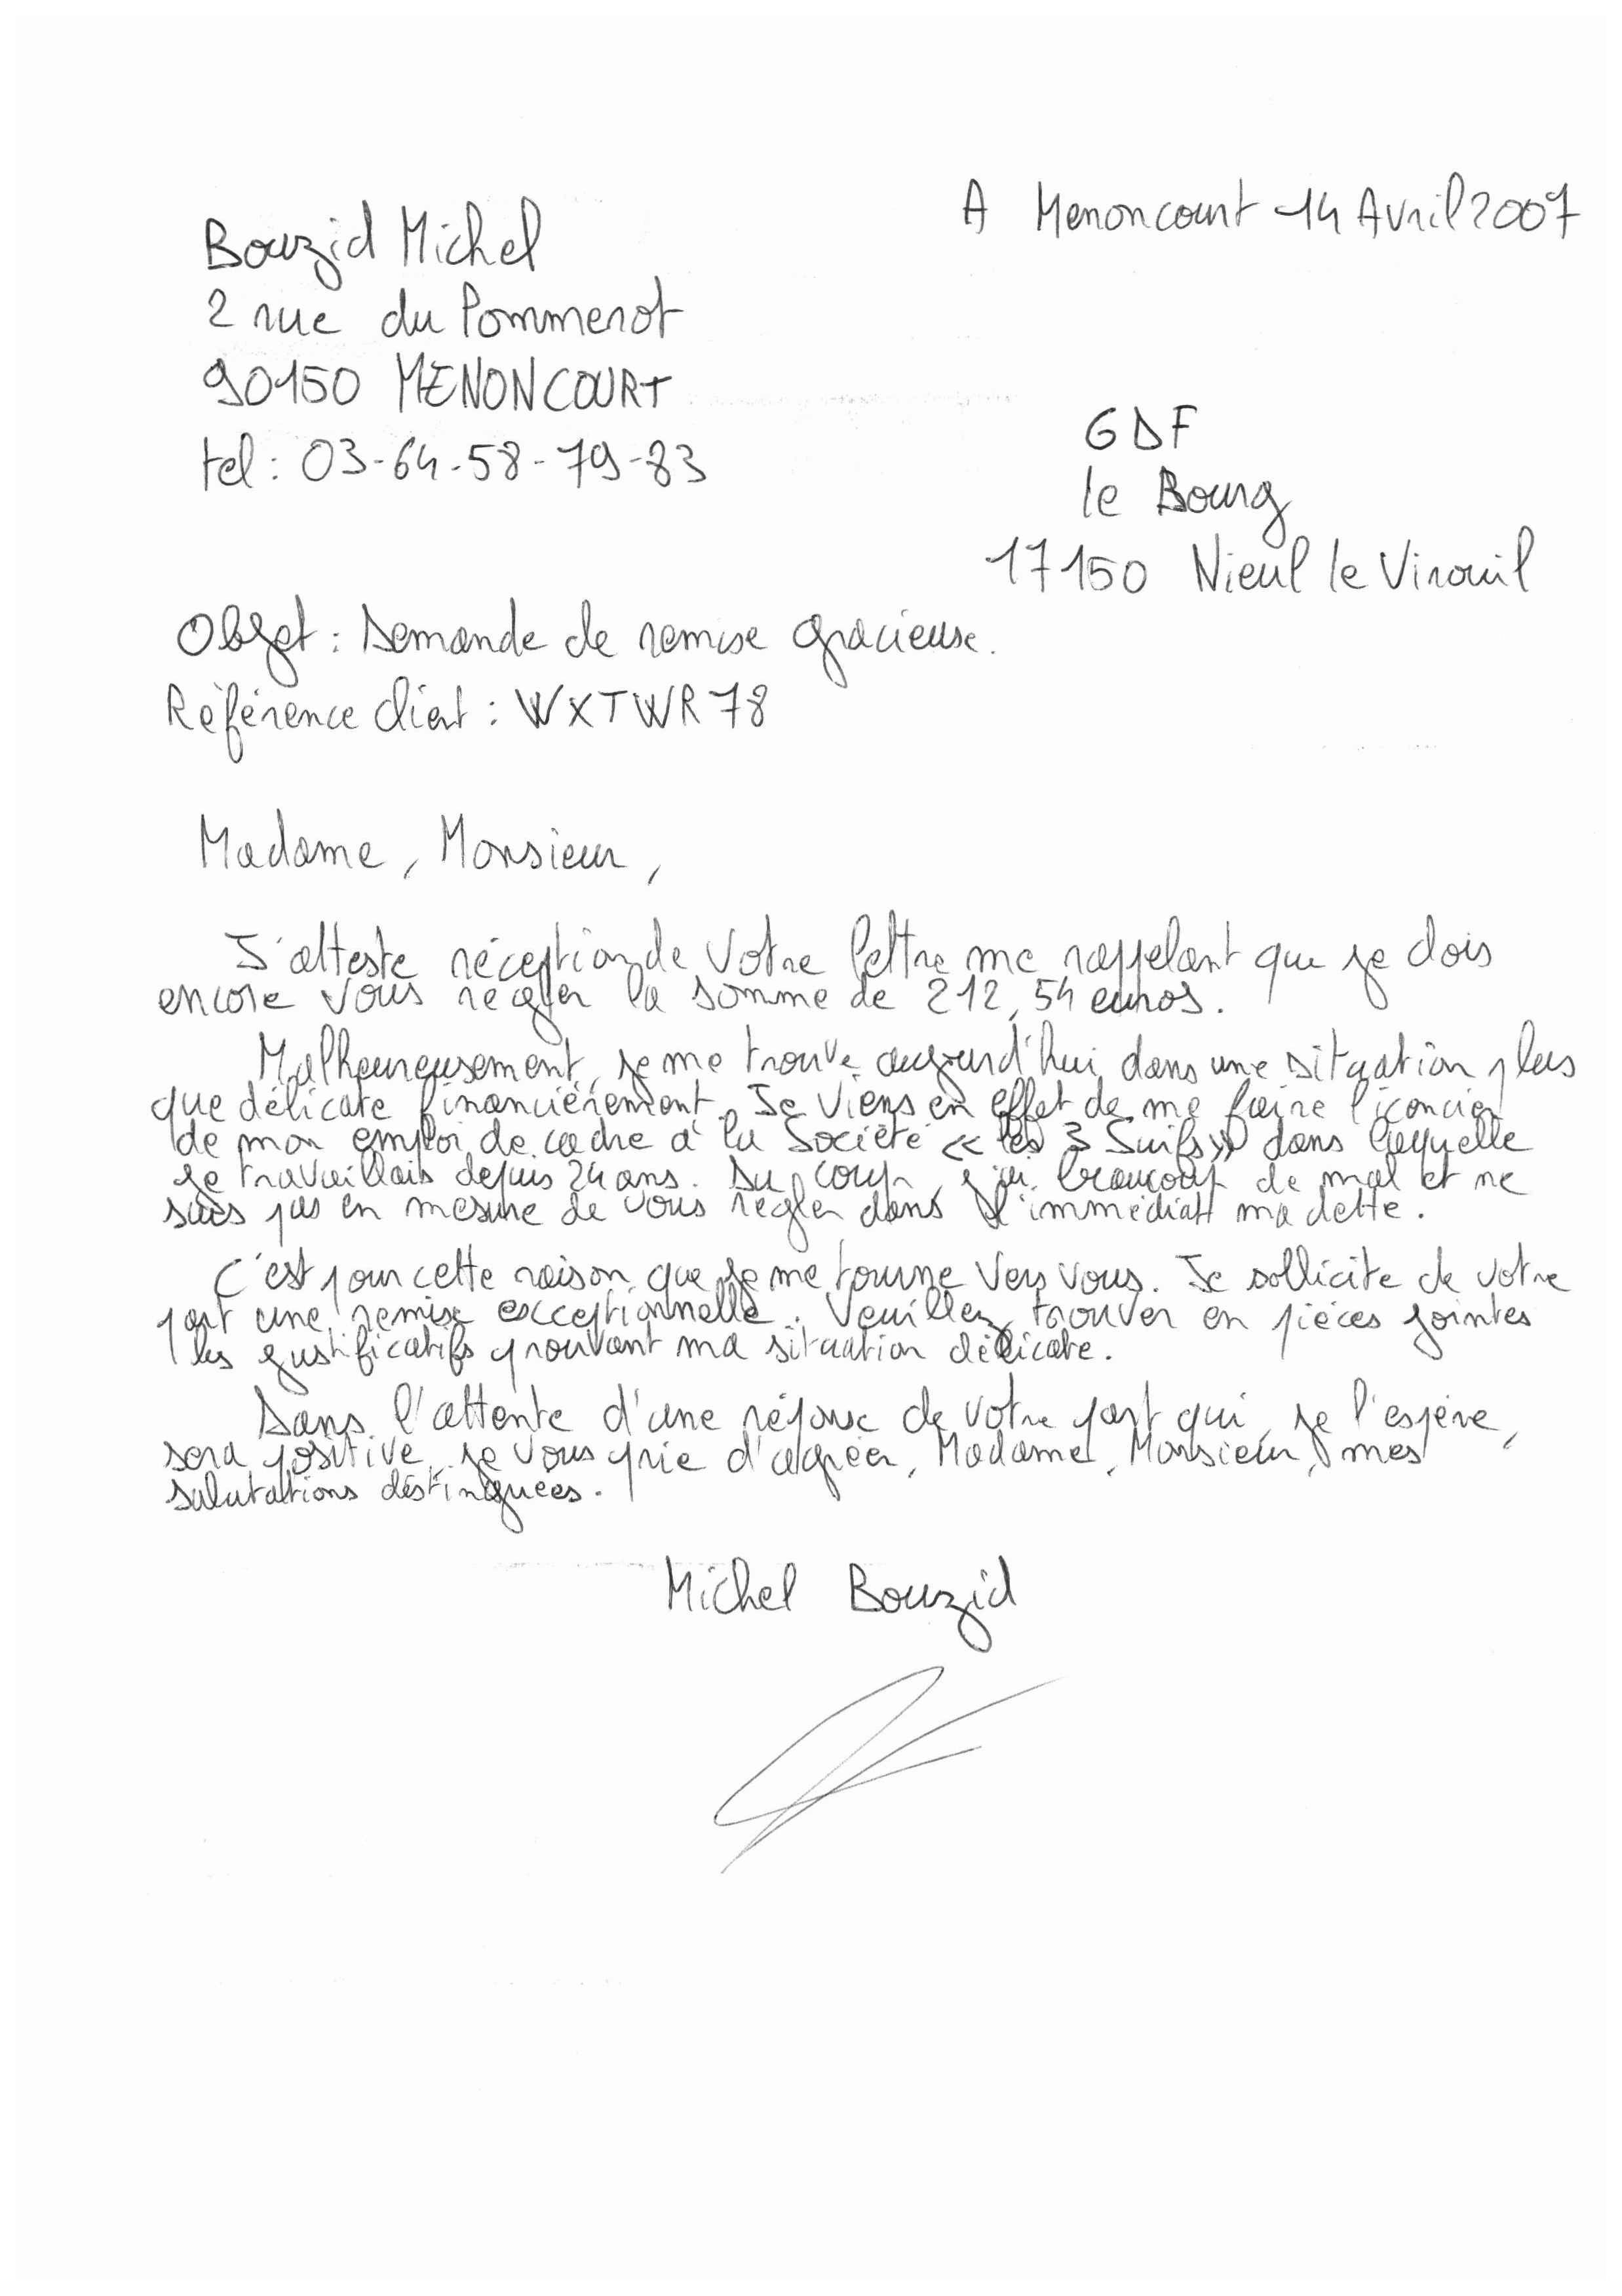 A Menoncourt 14 Avril 2007
Bouzid Michel
2 rue du Pommerot
90150 MENONCOURT
tel : 03-64-58-79-83
GDF
le Bourg
17150 Nieul le Virouil
Objet : Demande de remise gracieuse.
Référence client : WXTWR78
Madame, Monsieur,
J'atteste réception de votre lettre me rappelant que je dois
encore vous régler la somme de 212,54 euros.
Malheureusement, je me trouve aujourd'hui dans une situation plus
que délicate financièrement. Je viens en effet de me faire licencier
de mon emploi de cadre à la Société « les 3 Suifs » dans laquelle
je travaillais depuis 24 ans. Du coup, j'ai beaucoup de mal et ne
suis pas en mesure de vous régler dans l'immédiat ma dette.
C'est pour cette raison que je me tourne vers vous. Je sollicite de votre
part une remise exceptionnelle. Veuillez trouver en pièces jointes
les justificatifs prouvant ma situation délicate.
Dans l'attente d'une réponse de votre part qui, je l'espère,
sera positive, je vous prie d'agréer, Madame, Monsieur, mes
salutations distinguées.
Michel Bouzid